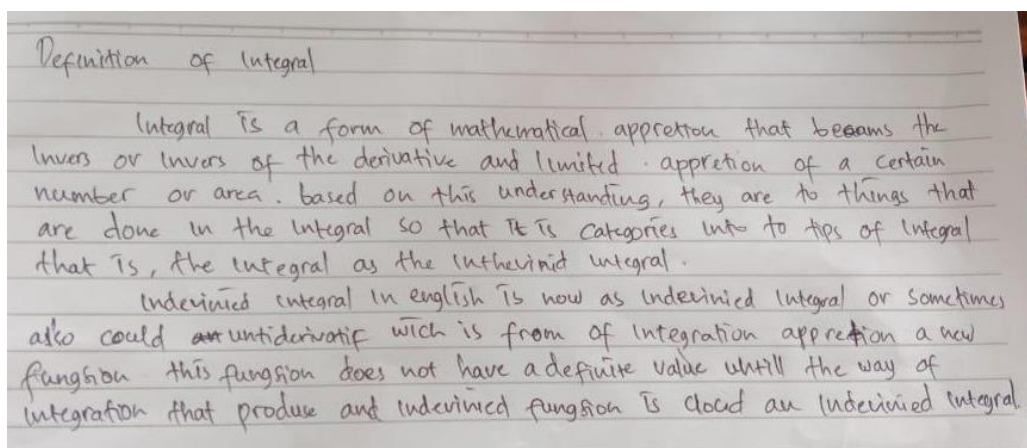 Definition of Integral
Integral is a form of mathematical appretion that becams the
invers or invers of the derivative and limited appretion of a certain
number or area. based on this understanding, they are to things that
are done in the integral so that it is categories into to tips of integral
that is, the integral as the inthevinid integral.
Indevinied integral in english is now as indevinied integral or sometimes
also could untiderivatif wich is from of integration appretion a new
fungsion this fungsion does not have a definite value untill the way of
integration that produse and indevinied fungsion is cloud an indevinied integral.